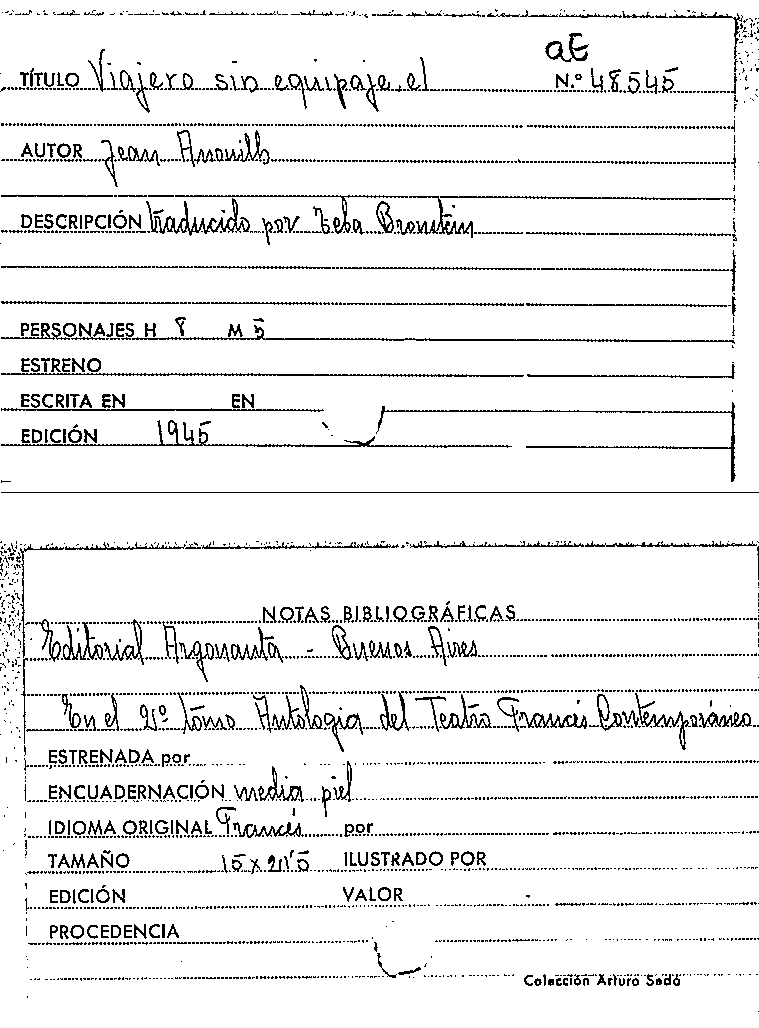 aE
TÍTULO Viajero sin equipaje, el N.º 48545
AUTOR Jean Anouilh
DESCRIPCIÓN traducido por Zeba Bronstein
PERSONAJES H 8 M 5
ESTRENO
ESCRITA EN EN
EDICIÓN 1945
NOTAS BIBLIOGRÁFICAS
Editorial Argonauta - Buenos Aires
En el tomo Antologia del Teatro Francés Contemporáneo
ESTRENADA por
ENCUADERNACIÓN media piel
IDIOMA ORIGINAL Francés por
TAMAÑO 15 x 21'5 ILUSTRADO POR
EDICIÓN VALOR
PROCEDENCIA
Colección Arturo Sedó